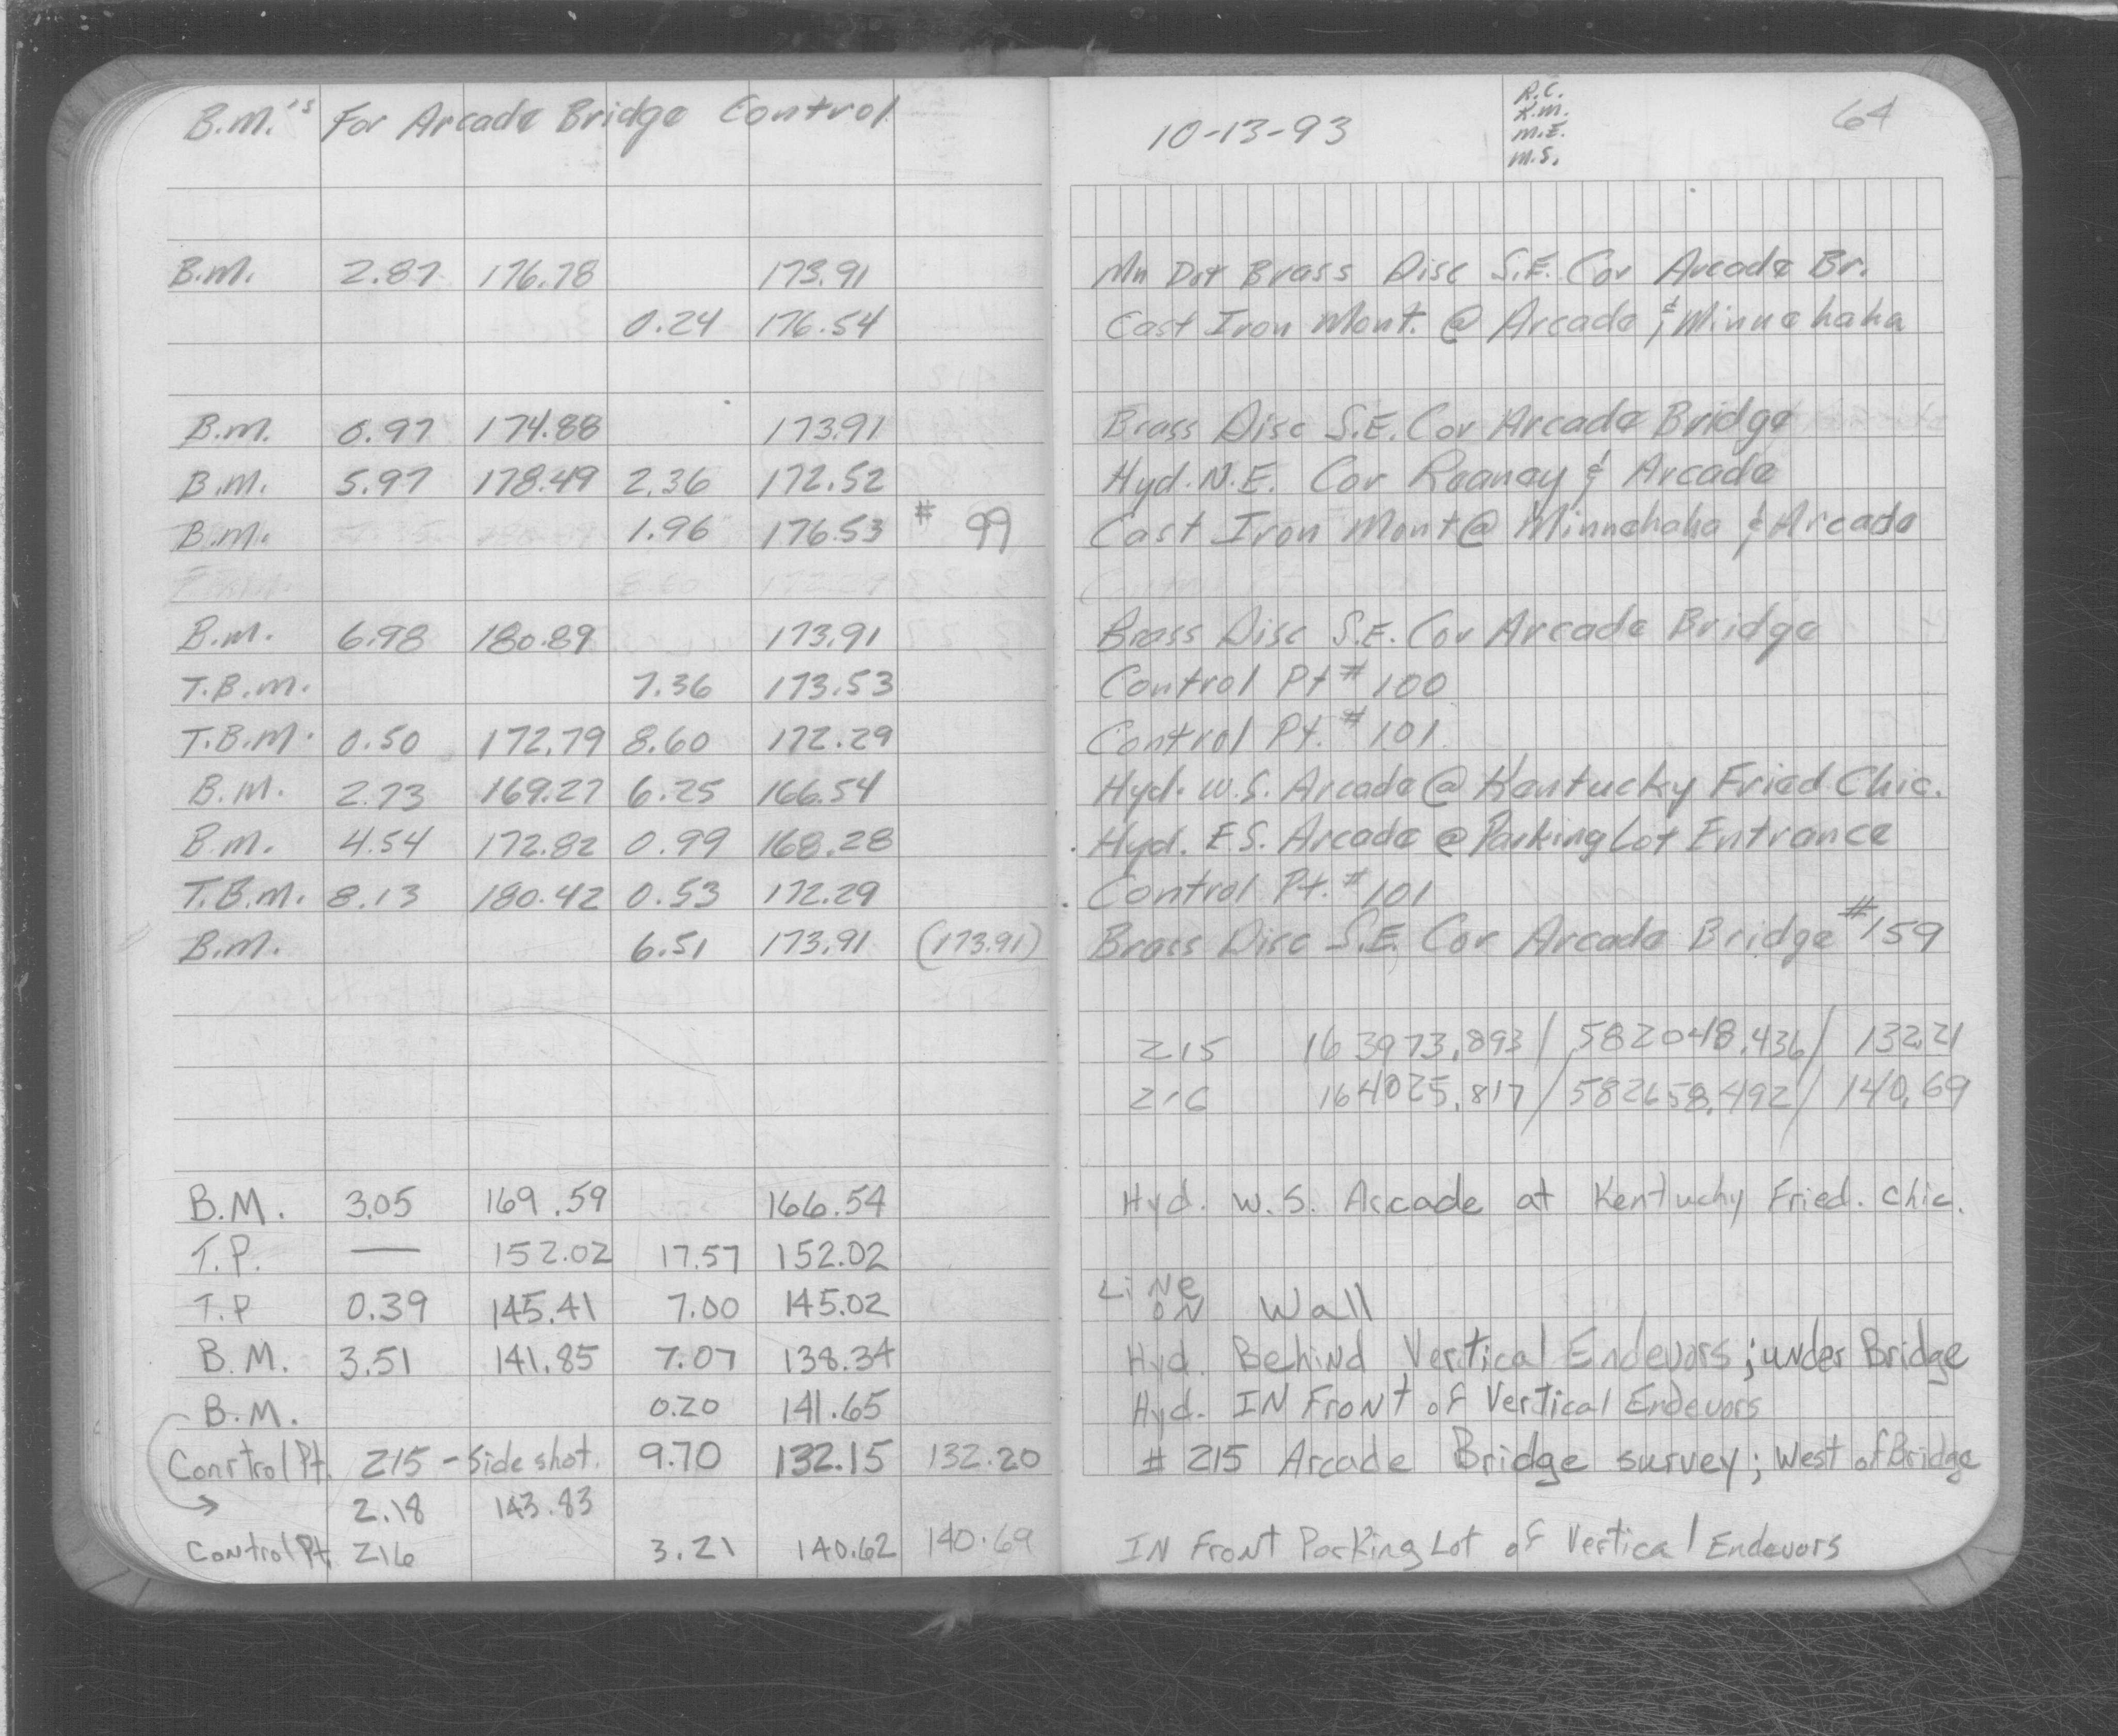 B.M.'s For Arcade Bridge Control
10-13-93
R.C.
K.M.
M.E.
M.S.
64
B.M. 2.87 176.78 173.91 Mn Dot Brass Disc S.E. Cor Arcade Br.
0.24 176.54 Cast Iron Mont. @ Arcade & Minnehaha
B.M. 0.97 174.88 173.91 Brass Disc S.E. Cor Arcade Bridge
B.M. 5.97 178.49 2.36 172.52 Hyd. N.E. Cor Reaney & Arcade
B.M. 1.96 176.53 # 99 Cast Iron Mont @ Minnehaha & Arcade
8.60 172.29
B.M. 6.98 180.89 173.91 Brass Disc S.E. Cor Arcade Bridge
T.B.M. 7.36 173.53 Control Pt # 100
T.B.M. 0.50 172.79 8.60 172.29 Control Pt. # 101
B.M. 2.73 169.27 6.25 166.54 Hyd. W.S. Arcade @ Kentucky Fried Chic.
B.M. 4.54 172.82 0.99 168.28 Hyd. E.S. Arcade @ Parking Lot Entrance
T.B.M. 8.13 180.42 0.53 172.29 Control Pt. # 101
B.M. 6.51 173.91 (173.91) Brass Disc S.E. Cor Arcade Bridge #159
215 163973.893 / 582048.436 / 132.21
216 164025.817 / 582658.492 / 140.69
B.M. 3.05 169.59 166.54 Hyd. W.S. Arcade at Kentuchy Fried. Chic.
T.P. — 152.02 17.57 152.02
T.P 0.39 145.41 7.00 145.02 LiNe ON Wall
B.M. 3.51 141.85 7.07 138.34 Hyd. Behind Vertical Endevors; under Bridge
B.M. 0.20 141.65 Hyd. IN Front of Vertical Endevors
Conrtrol Pt. 215 - Side shot. 9.70 132.15 132.20 # 215 Arcade Bridge survey; West of Bridge
→ 2.18 143.83
Control Pt. 216 3.21 140.62 140.69 IN Front Parking Lot of Vertical Endevors